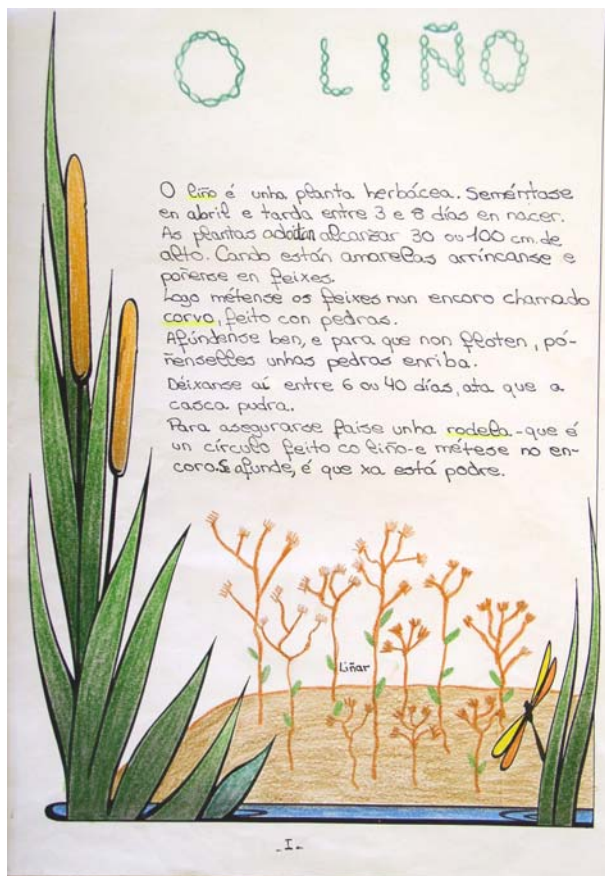 O LIÑO
O liño é unha planta herbácea. Seméntase
en abril e tarda entre 3 e 8 días en nacer.
As plantas adoitan alcanzar 30 ou 100 cm. de
alto. Cando están amarelas arríncanse e
poñense en feixes.
Logo métense os feixes nun encoro chamado
corvo, feito con pedras.
Afúndense ben, e para que non floten, pó-
ñenselles unhas pedras enriba.
Déixanse aí entre 6 ou 40 días, ata que a
casca pudra.
Para asegurarse faise unha rodela - que é
un círculo feito co liño - e métese no en-
coro. Se afunde, é que xa está podre.
Liñar
- I -